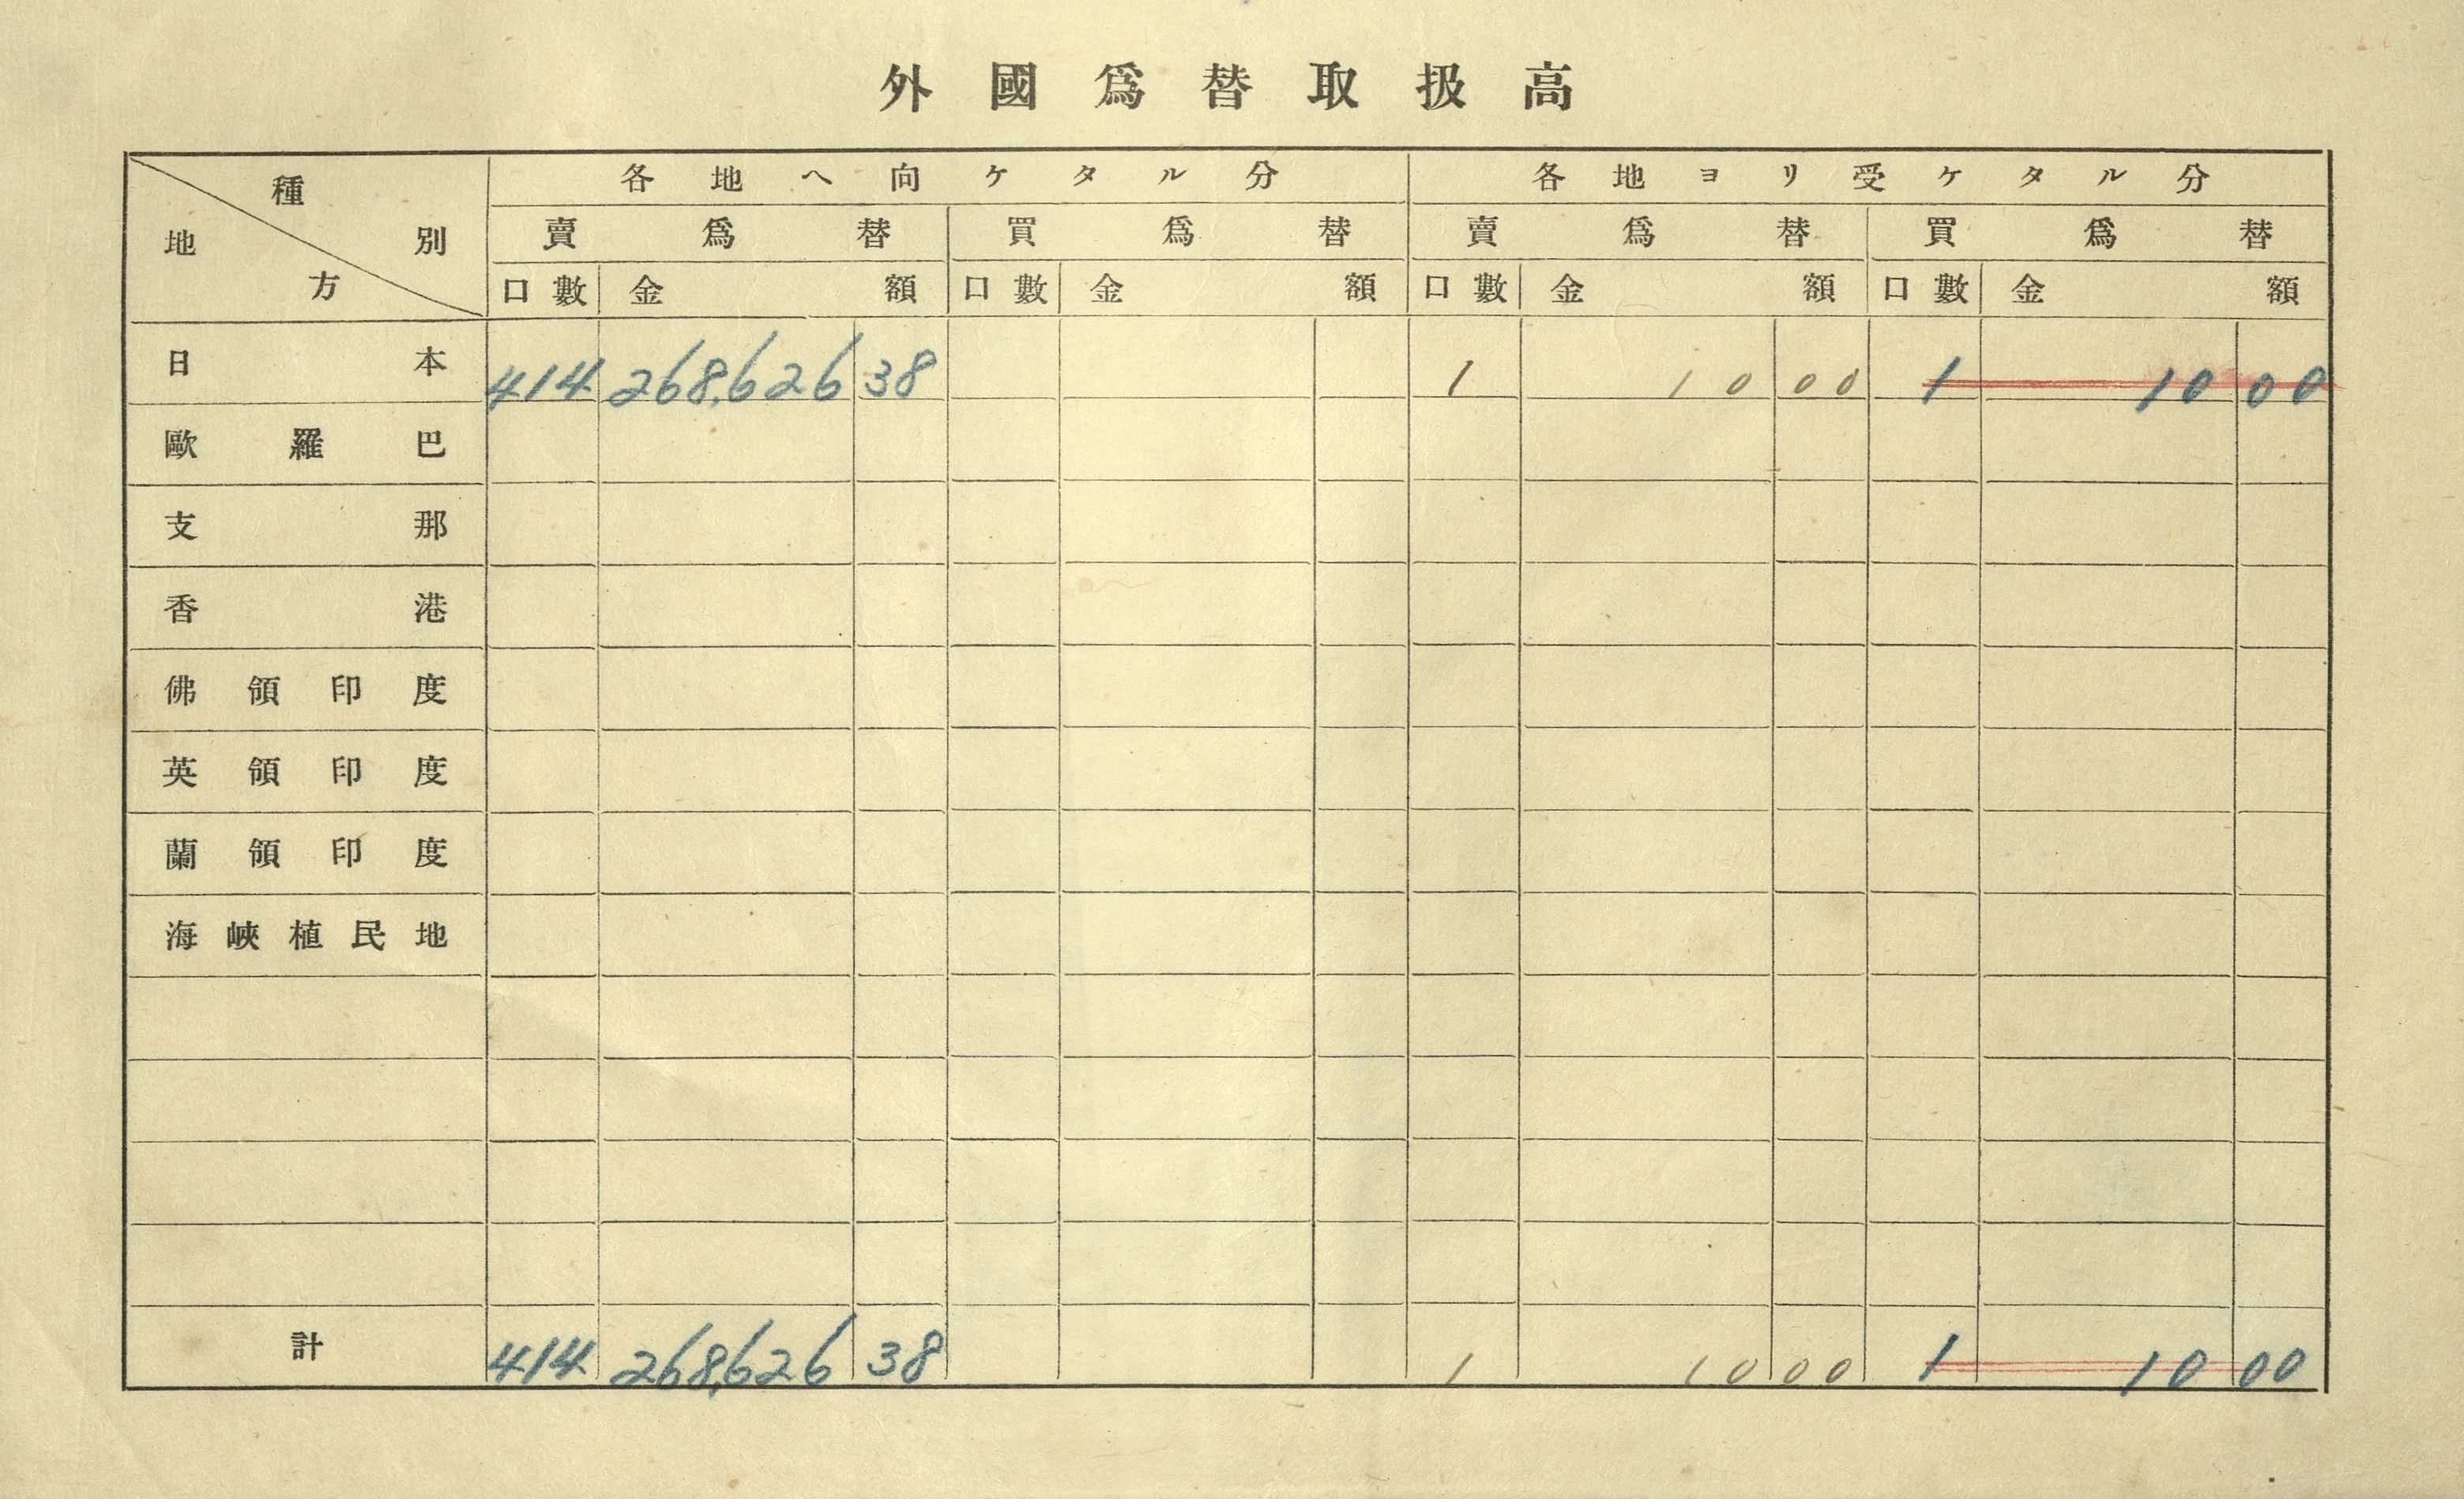 外國爲替取扱高
種別 地方 各地へ向ケタル分 各地ヨリ受ケタル分
賣爲替 買爲替 賣爲替 買爲替
口數 金額 口數 金額 口數 金額 口數 金額
日本 414 268,626 38 1 10 00 1 10 00
歐羅巴
支那
香港
佛領印度
英領印度
蘭領印度
海峽植民地
計 414 268,626 38 1 10 00 1 10 00